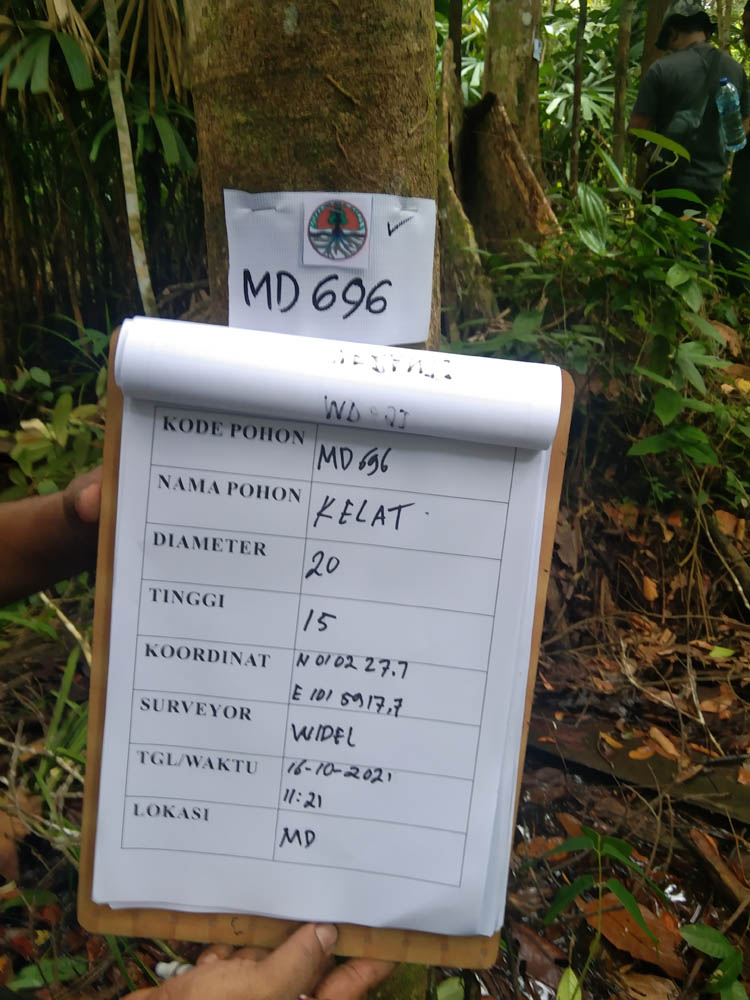 MD 696
KODE POHON MD 696
NAMA POHON KELAT
DIAMETER 20
TINGGI 15
KOORDINAT N 0102 27.7
E 101 5917,7
SURVEYOR WIDEL
TGL/WAKTU 16-10-2021
11:21
LOKASI MD